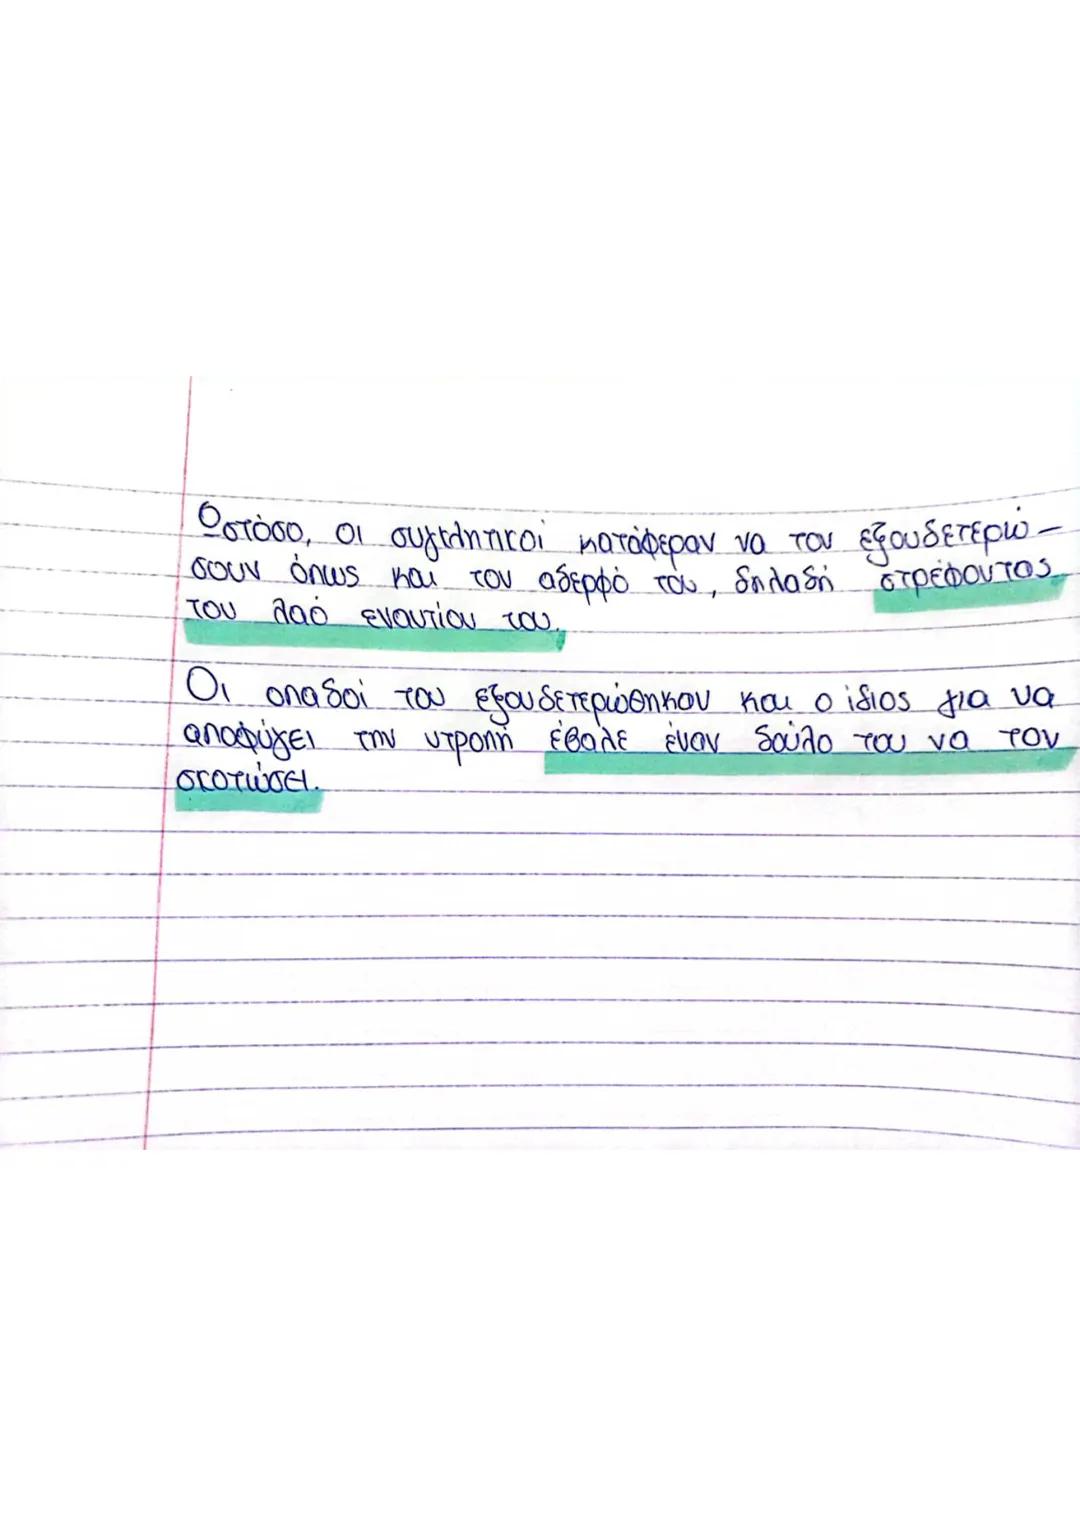 Ωστόσο, οι συγκλητικοί κατάφεραν να τον εξουδετερώ-
σουν όπως και τον αδερφό του, δηλαδή στρέφοντας
τον λαό εναντίον του.
Οι οπαδοί του εξουδετερώθηκαν και ο ίδιος για να
αποφύγει την ντροπή έβαλε έναν δούλο του να τον
σκοτώσει.